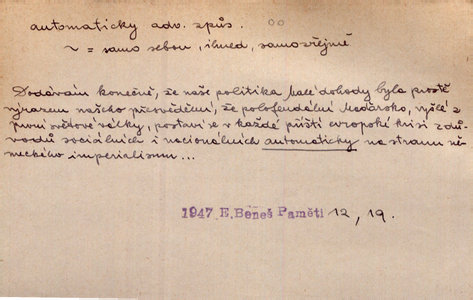 automaticky adv. způs.
~ = samo sebou, ihned, samozřejmě
Dodávám konečně, že naše politika Malé dohody byla prostě
výrazem našeho přesvědčení, že polofeudální Maďarsko, vyšlé z
první světové války, postaví se v každé příští evropské krisi z dů-
vodů sociálních i nacionálních automaticky na stranu ně-
meckého imperialismu...
1947 E. Beneš Paměti 12, 19.